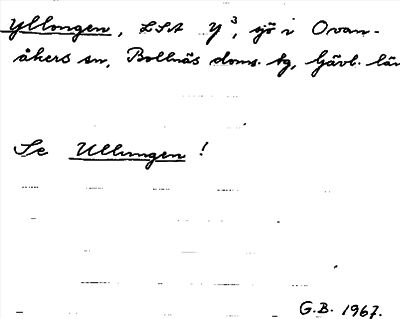 Yllongen, LSA Y³, sjö i Ovan-
åkers sn, Bollnäs doms. tg, Gävl. län
Se Ullungen!
G.B. 1967.